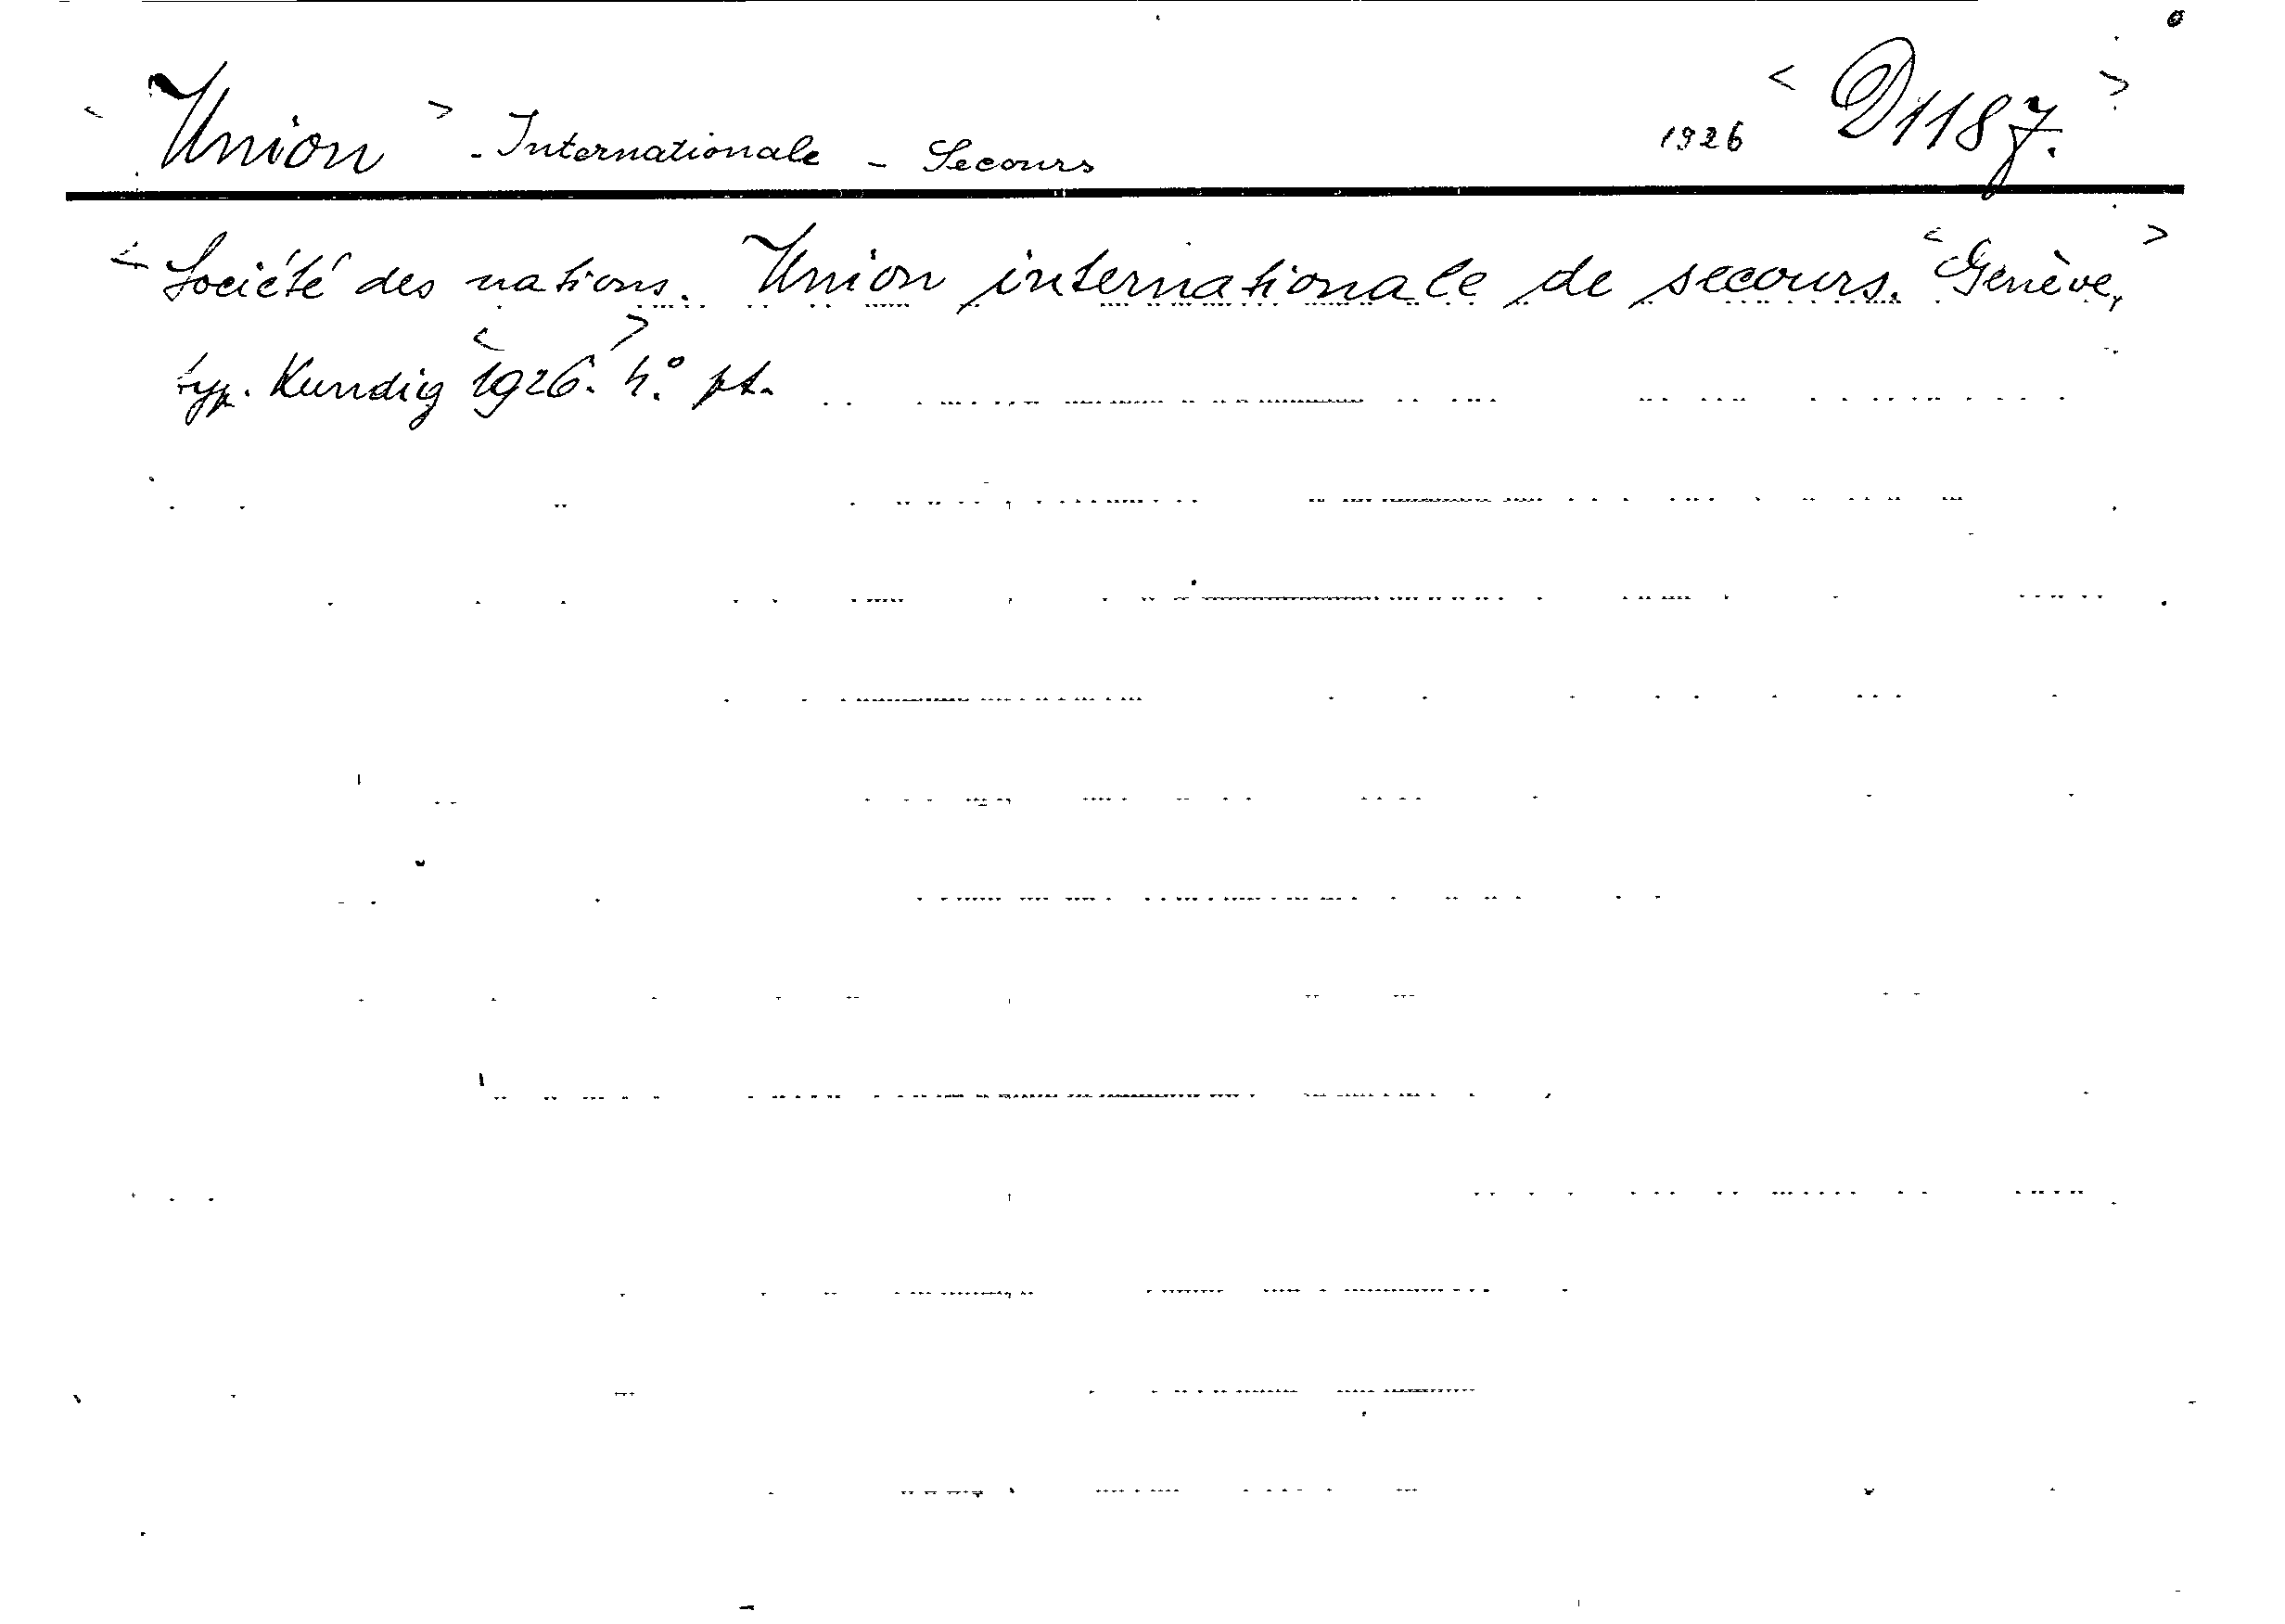 < Union > - Internationale - Secours 1926 < D1187. >
< Société des nations. Union internationale de secours. < Genève, >
typ. Kundig < 1926. > 4.° pt.